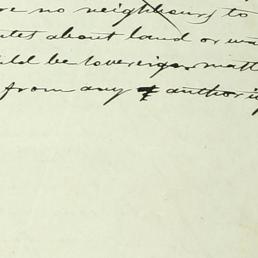 re no neighbours to
utes about land or wa
uld be sovereign matt
from any authority